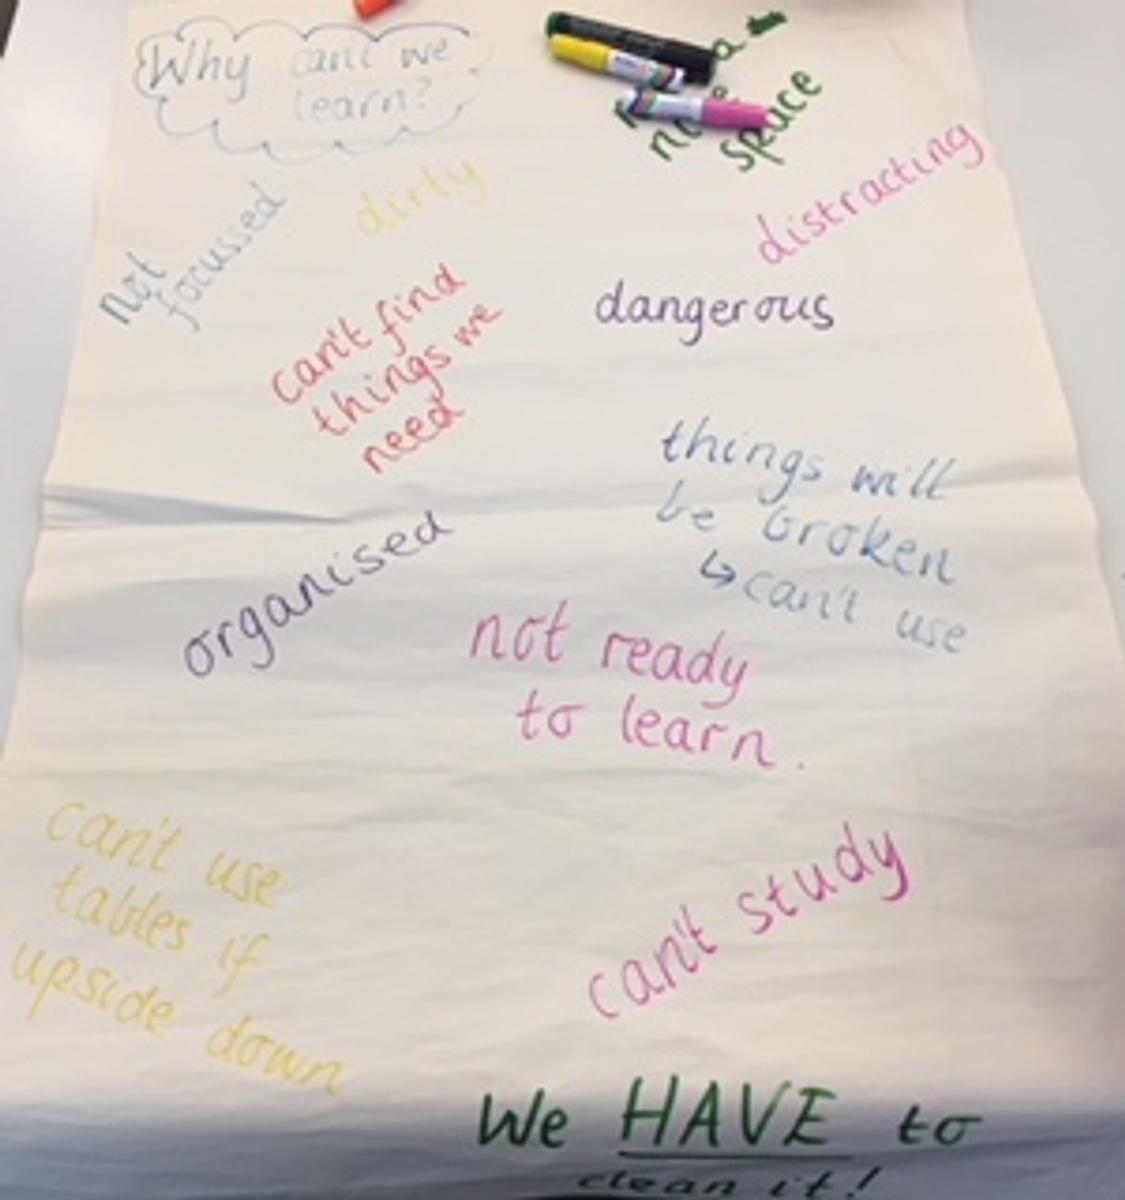 Why can't we
learn?
space
distracting
dirty
not
focussed
can't find
things we
need
dangerous
things will
be broken
↳ can't use
organised
not ready
to learn.
can't use
tables if
upside down
can't study
We HAVE to
clean it!